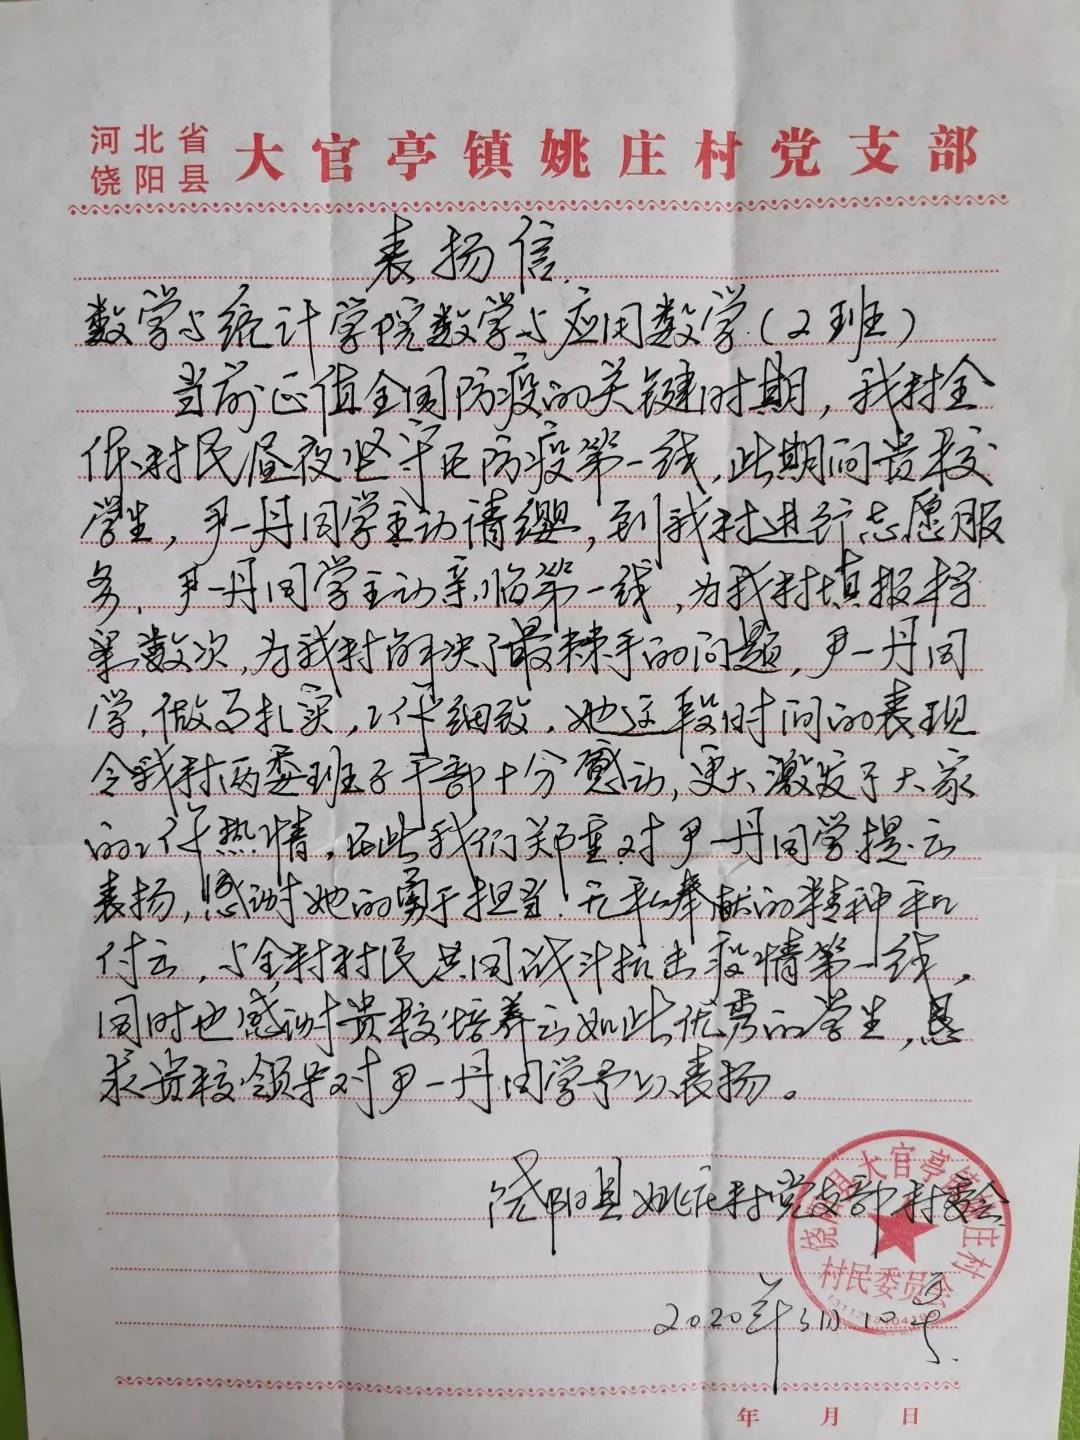 河北省
饶阳县
大官亭镇姚庄村党支部
表扬信
数学与统计学院数学与应用数学(2班)
当前正值全国防疫的关键时期，我村全
体村民昼夜坚守在防疫第一线，此期间贵校
学生，尹一丹同学主动请缨，到我村进行志愿服
务，尹一丹同学主动亲临第一线，为我村填报档
案数次，为我村解决了最棘手的问题，尹一丹同
学，做事扎实，工作细致，她这段时间的表现
令我村两委班子干部十分感动，更大激发了大家
的工作热情，在此我们郑重对尹一丹同学提出
表扬，感谢她的勇于担当、无私奉献的精神和
付出，与全村村民共同战斗抗击疫情第一线，
同时也感谢贵校培养出如此优秀的学生，恳
求贵校领导对尹一丹同学予以表扬。
饶阳县姚庄村党支部村委会
2020年3月10号
饶阳县大官亭镇姚庄村
村民委员会
年 月 日